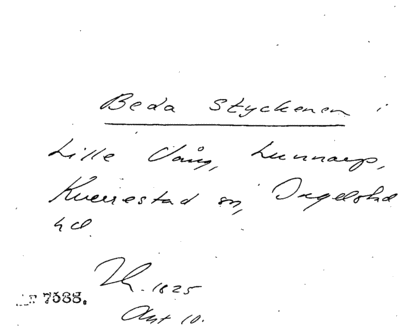 Beda Styckenen i
Lille Vång, Lunnarp,
Kverrestad sn, Ingelstad
hd
Th. 1825
Akt 10.
7588.